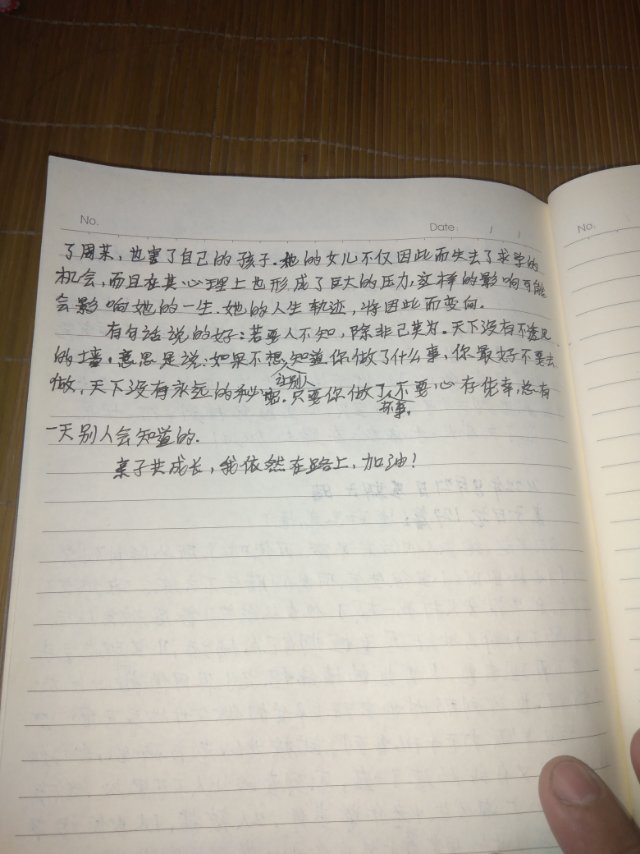 No.
Date: / /
No.
了周某,也害了自己的孩子.她的女儿不仅因此而失去了求学的
机会,而且在其心理上也形成了巨大的压力,这样的影响可能
会影响她的一生.她的人生轨迹,将因此而变向.
有句话说的好:若要人不知,除非己莫为.天下没有不透风
的墙.意思是说:如果不想让别人知道你做了什么事,你最好不要去
做,天下没有永远的秘密.只要你做了坏事,不要心存侥幸,总有
一天别人会知道的.
亲子共成长,我依然在路上,加油!